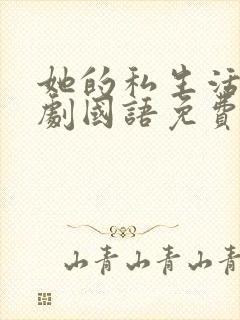 她的私生活
劇國語免費
山青山青山青